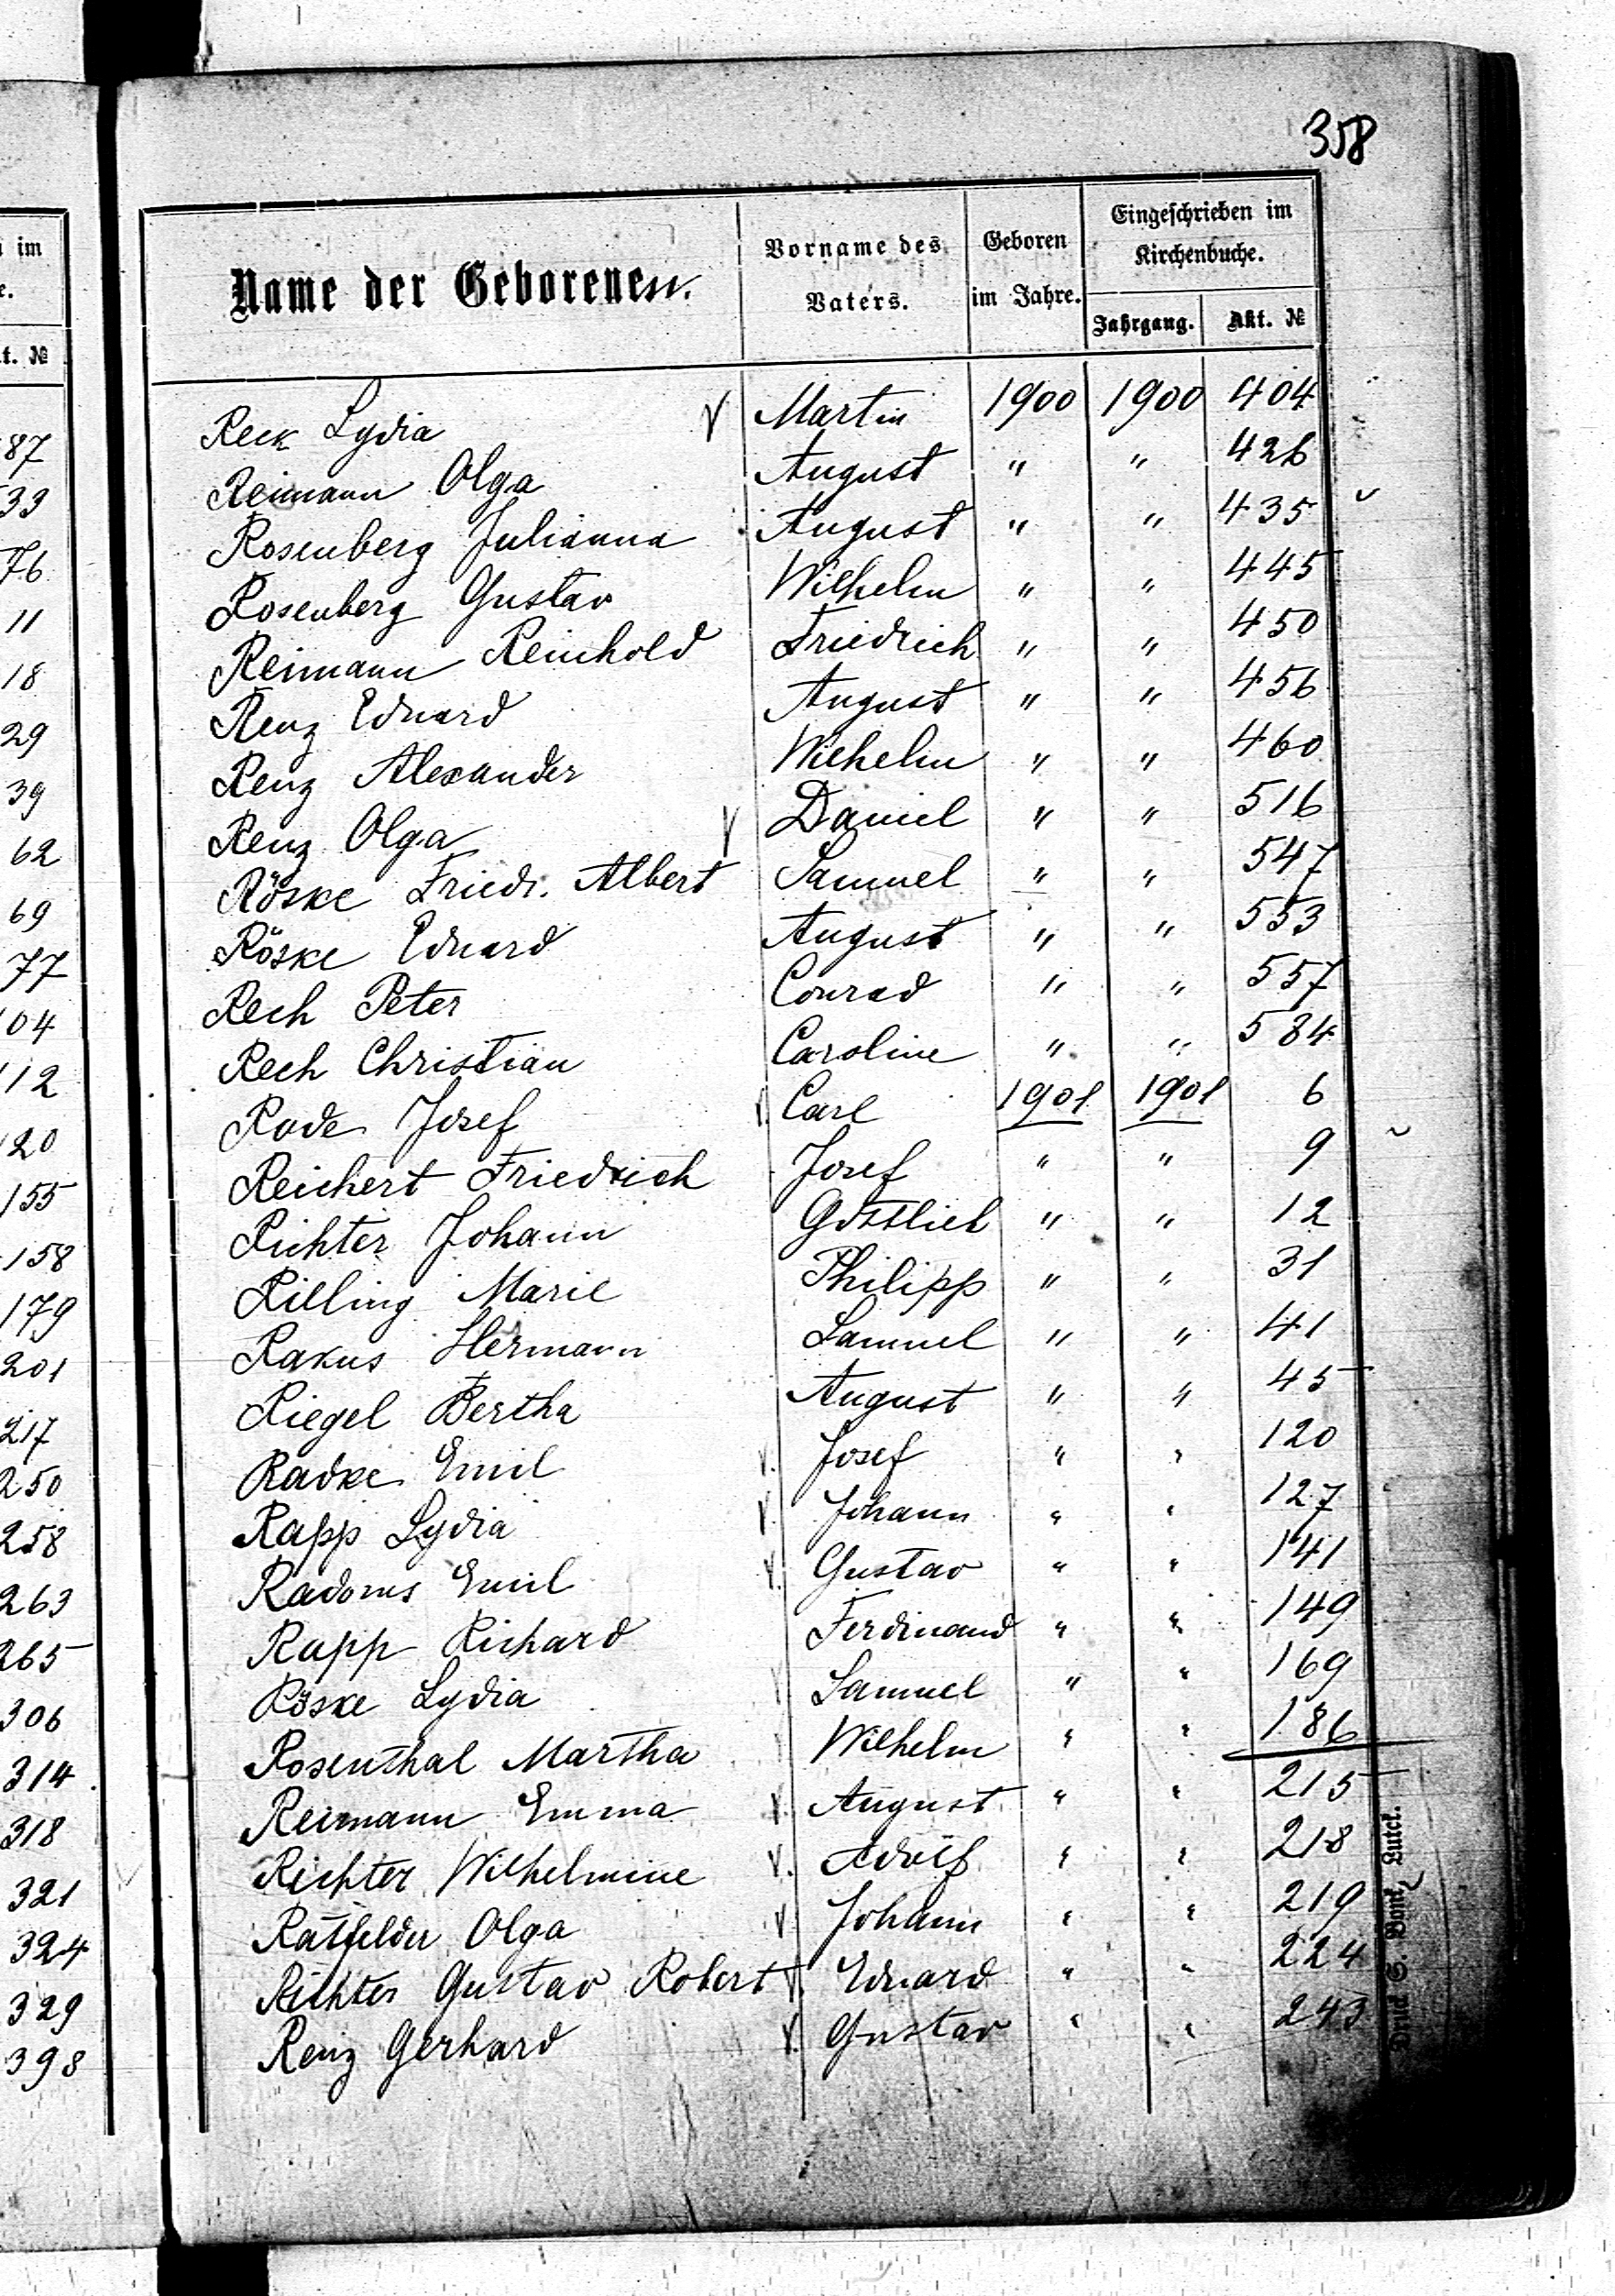 358
Name der Geborenen.
Vorname des Vaters.
Geboren im Jahre.
Eingeschrieben im Kirchenbuche.
Jahrgang.
Akt. №
Reck Lydia V Martin 1900 1900 404
Reimann Olga August " " 426
Rosenberg Julianna August " " 435
Rosenberg Gustav Wilhelm " " 445
Reimann Reinhold Friedrich " " 450
Renz Eduard August " " 456
Renz Alexander Wilhelm " " 460
Renz Olga V Daniel " " 516
Röske Friedr. Albert Samuel " " 547
Röske Eduard August " " 553
Rech Peter Conrad " " 557
Rech Christian Caroline " " 584
Rode Josef V Carl 1901 1901 6
Reichert Friedrich Josef " " 9
Richter Johann Gottlieb " " 12
Rilling Marie Philipp " " 31
Rakus Hermann Samuel " " 41
Riegel Bertha August " " 45
Radke Emil V. Josef " " 120
Rapp Lydia V. Johann " " 127
Radoms Emil V. Gustav " " 141
Rapp Richard Ferdinand " " 149
Röske Lydia Samuel " " 169
Rosenthal Martha Wilhelm " " 186
Reimann Emma V. August " " 215
Richter Wilhelmine V. Adolf " " 218
Ratfelder Olga V Johann " " 219
Richter Gustav Robert V. Eduard " " 224
Renz Gerhard V. Gustav " " 243
im
e.
t. №
87
33
76
11
18
29
39
62
69
77
04
112
120
155
158
179
201
217
250
258
263
265
306
314
318
321
324
329
398